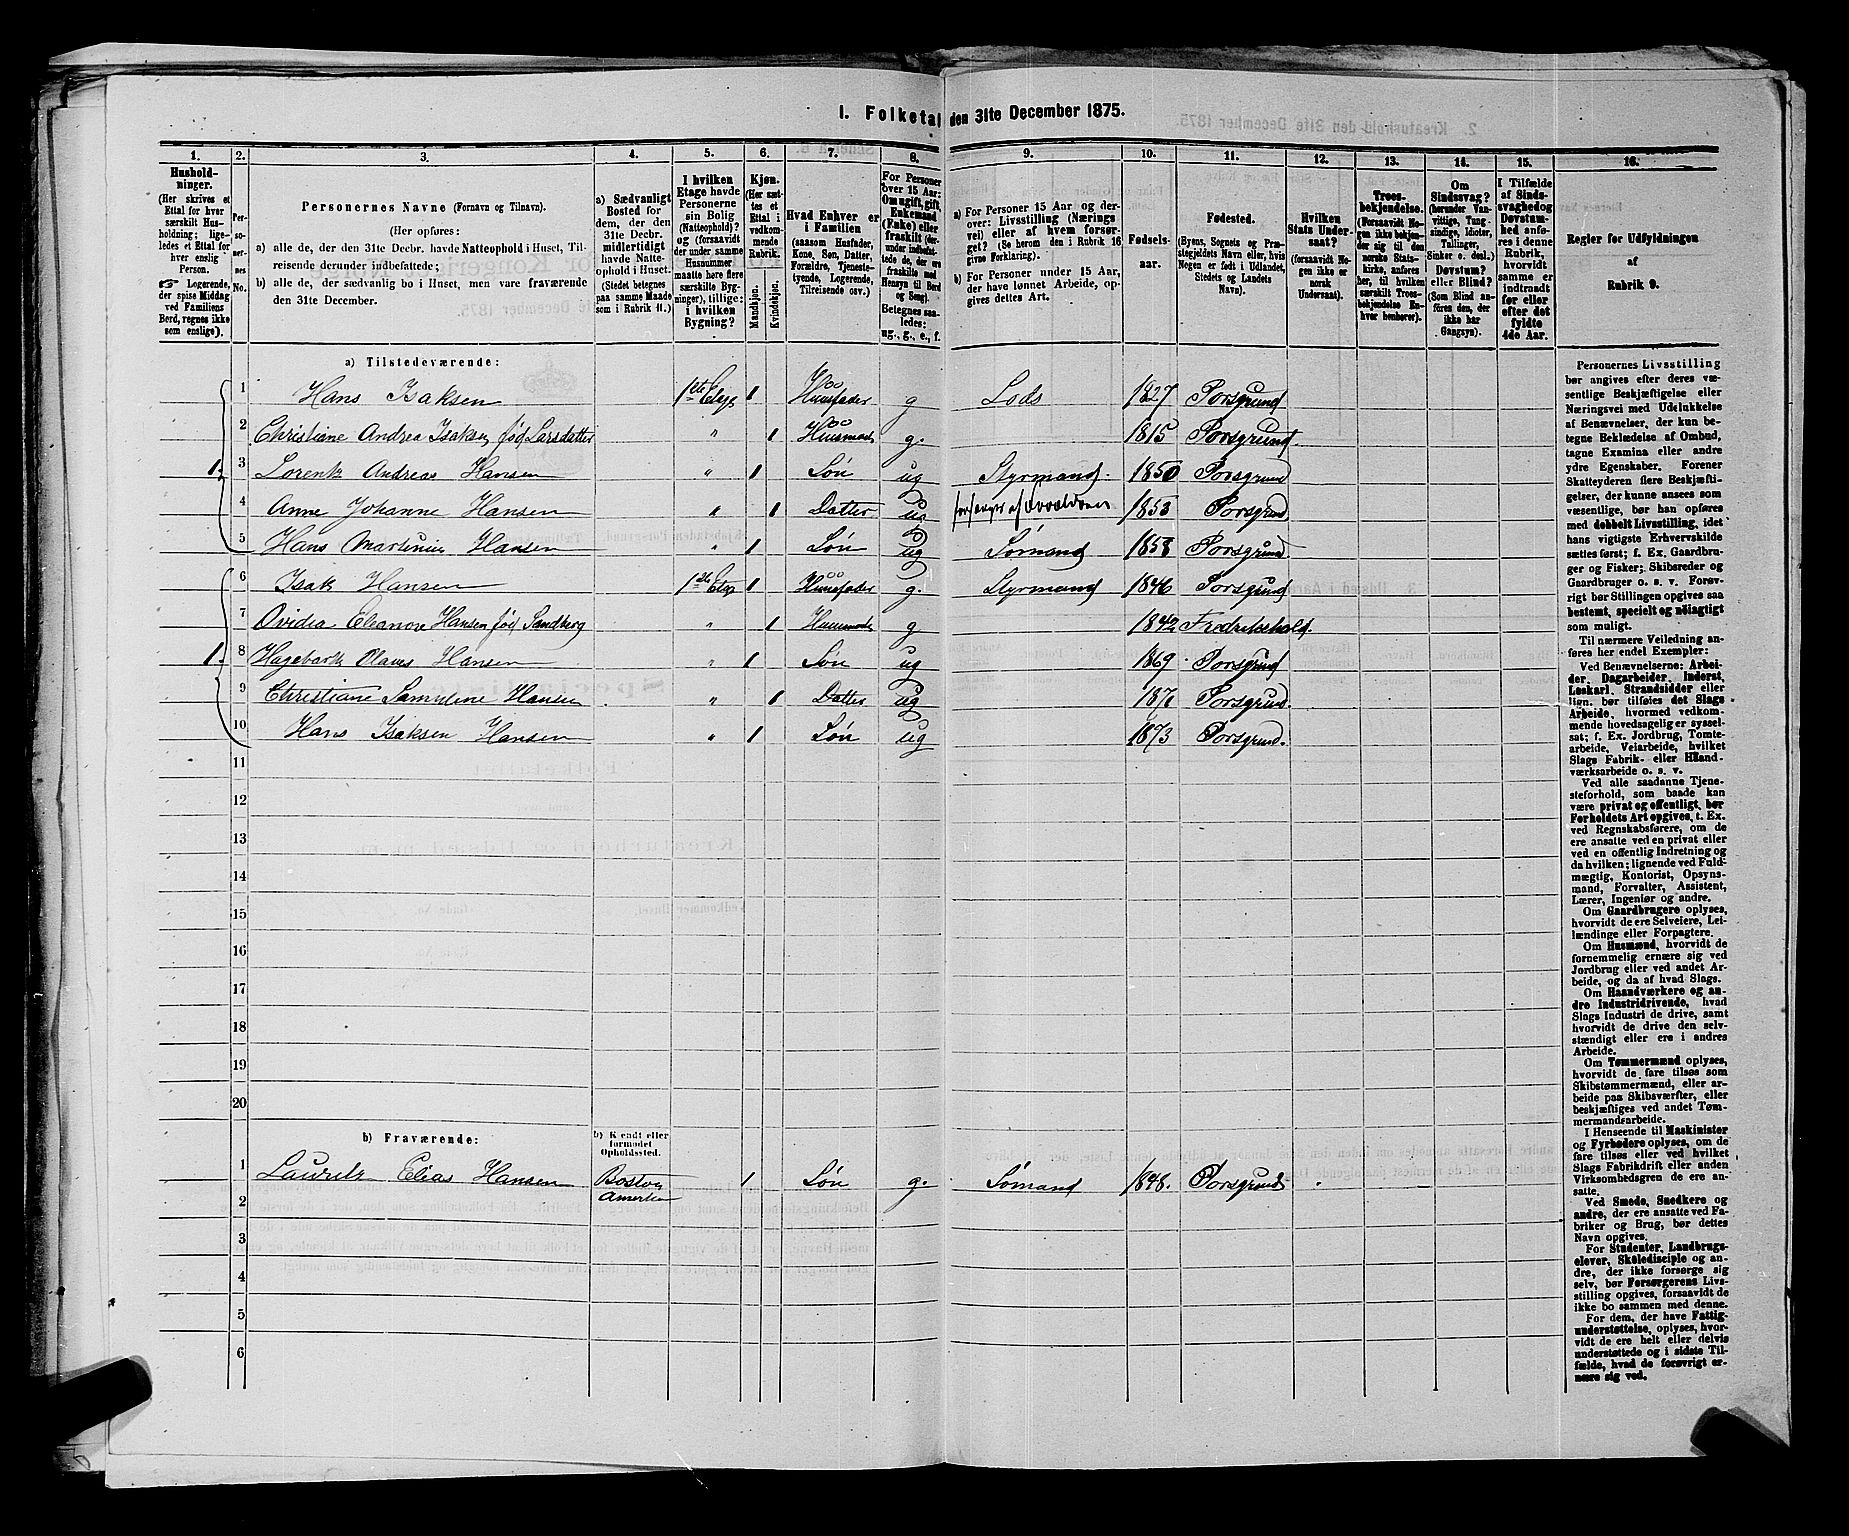 1. Folketal den 31te December 1875.
1. 2. 3. 4. 5. 6. 7. 8. 9. 10. 11. 12. 13. 14. 15. 16.
Husholdninger.
(Her skrives et
Ettal for hver
særskilt Husholdning; ligeledes
et Ettal for
hver enslig
Person.
Logerende,
der spise Middag
ved Familiens
Bord, regnes ikke
som enslige).
Personernes No.
Personernes Navne (Fornavn og Tilnavn).
(Her opføres:
a) alle de, der den 31te Decbr. havde Natteophold i Huset, Tilreisende derunder indbefattede;
b) alle de, der sædvanlig bo i Huset, men vare fraværende
den 31te December.
a) Sædvanligt
Bosted for
dem, der den
31te Decbr.
midlertidigt
havde Natteophold
i Huset.
(Stedet betegnes
paa samme Maade
som i Rubrik 11.)
I hvilken
Etage havde
Personerne
sin Bolig
(Natteophold)?
og (forsaavidt
der under samme
Husnummer
maatte høre flere
særskilte Bygninger),
tillige:
i hvilken
Bygning?
Kjøn.
(Her sættes
et Ettal i
vedkommende
Rubrik.
Mandkjøn.
Kvindekjøn.
Hvad Enhver er
i Familien
(saasom Husfader,
Kone, Søn, Datter,
Forældre, Tjenestetyende,
Logerende,
Tilreisende osv.)
For Personer
over 15 Aar:
Om ugift, gift,
Enkemand
(Enke) eller
fraskilt
Betegnes saaledes:
ug., g., e., f.
a) For Personer over 15 Aar og derover:
Livsstilling (Næringsvei)
eller af hvem forsørget?
(Se herom den i Rubrik 16
givne Forklaring).
b) For Personer under 15 Aar,
der have lønnet Arbeide, opgives
dettes Art.
Fødselsaar.
Fødested.
(Byens, Sognets og Præstegjeldets
Navn eller, hvis
Nogen er født i Udlandet,
Stedets og Landets
Navn).
Hvilken
Stats Undersaat?
(forsaavidt Nogen
ikke er
norsk
Undersaat).
Troesbekjendelse.
(Forsaavidt Nogen
ikke bekjender
sig til den
norske Statskirke,
anføres
her, til hvilken
særskilt Troesbekjendelse
Enhver
henhører).
Om
Sindssvag?
(herunder Vanvittige,
Tungsindige,
Idioter,
Tullinger,
Sinker o. desl.)
Døvstum?
eller Blind?
(Som Blind anføres
den, der
ikke har
Gangsyn).
I Tilfælde
af Sindssvaghed
og
Døvstumhed
anføres
i denne
Rubrik,
hvorvidt
samme er
indtraadt
før eller
efter det
fyldte
4de Aar.
Regler for Udfyldningen
af
Rubrik 9.
a) Tilstedeværende:
1 Hans Isaksen 1ste Etage 1 Huusfader g Lods 1827 Porsgrund
2 Christiane Andrea Isaksen fød Larsdatter " 1 Huusmoder g. 1815 Porsgrund.
1. 3 Lorentz Andreas Hansen " 1 Søn ug Styrmand. 1850 Porsgrund
4 Anne Johanne Hansen " 1 Datter ug forsørges af Forældrene 1853 Porsgrund
5 Hans Martinius Hansen " 1 Søn ug Sømand 1858 Porsgrund.
6 Isak Hansen 1 1 Huusfader g. Styrmand 1846 Porsgrund
7 Ovidia Eleanore Hansen fød Sandberg " 1 Huusmoder g 1842 Fredrikshald.
1. 8 Hagebart Olaves Hansen " 1 Søn ug 1869 Porsgrund
9 Christiane Hansen " 1 Datter ug Porsgrund.
10 Hans Isaksen Hansen " 1 Søn ug 1873 Porsgrund.
11
12
13
14
15
16
17
18
19
20
b) Fraværende:
b) Kjendt eller
formodet
Opholdssted.
1 Lauritz Elias Hansen Boston 1 Søn g. Sømand 1848. Porsgrund
2 Amerika
3
4
5
6
Personernes Livsstilling
bør angives efter deres væsentlige
Beskjæftigelse eller
Næringsvei med Udelukkelse
af Benævnelser, der kun betegne
Beklædelse af Ombud,
tagne Examina eller andre
ydre Egenskaber. Forener
Skatteyderen flere Beskjæftigelser,
der kunne ansees som
væsentlige, bør han opføres
med dobbelt Livsstilling, idet
hans vigtigste Erhvervskilde
sættes først; f. Ex. Gaardbruger
og Fisker; Skibsreder og
Gaardbruger o. s. v. Forøvrigt
bør Stillingen opgives saa
bestemt, specielt og nøiagtigt
som muligt.
Til nærmere Veiledning anføres
her endel Exempler:
Ved Benævnelserne: Arbeider,
Dagarbeider, Inderst,
Løskarl, Strandsidder eller
lign. bør tilføies det Slags
Arbeide, hvormed vedkommende
hovedsagelig er sysselsat;
f. Ex. Jordbrug, Tomtearbeide,
Veiarbeide, hvilket
Slags Fabrik- eller Haandværksarbeide
o. s. v.
Ved alle saadanne Tjenesteforhold,
som baade kan
være privat og offentligt, bør
Forholdets Art opgives, t. Ex.
ved Regnskabsførere, om de
ere ansatte ved en privat eller
ved en offentlig Indretning og
da hvilken; lignende ved Fuldmægtig,
Kontorist, Opsynsmand,
Forvalter, Assistent,
Lærer, Ingeniør og andre.
Om Gaardbrugere oplyses,
hvorvidt de ere Selveiere, Leilændinge
eller Forpagtere.
Om Husmænd, hvorvidt de
fornemmelig ernære sig ved
Jordbrug eller ved andet Arbeide,
og da af hvad Slags.
Om Haandværkere og andre
Industridrivende, hvad
Slags Industri de drive, samt
hvorvidt de drive den selvstændigt
eller ere i andres
Arbeide.
Om Tømmermænd oplyses,
hvorvidt de fare tilsøs som
Skibstømmermænd, eller arbeide
paa Skibsværfter, eller
beskjæftiges ved andet Tømmermandsarbeide.
I Henseende til Maskinister
og Fyrbødere oplyses, om de
fare tilsøs eller ved hvilket
Slags Fabrikdrift eller anden
Virksomhedsgren de ere ansatte.
Ved Smede, Snedkere og
andre, der ere ansatte ved Fabriker
og Brug, bør dettes
Navn opgives.
For Studenter, Landbrugselever,
Skoledisciple og andre,
der ikke forsørge sig
selv, bør Forsørgerens Livsstilling
opgives, forsaavidt de
ikke bo sammen med denne.
For dem, der have Fattigunderstøttelse,
oplyses, hvorvidt
de ere helt eller delvis
understøttede og i sidste Tilfælde,
hvad de forøvrigt ernære
sig ved.